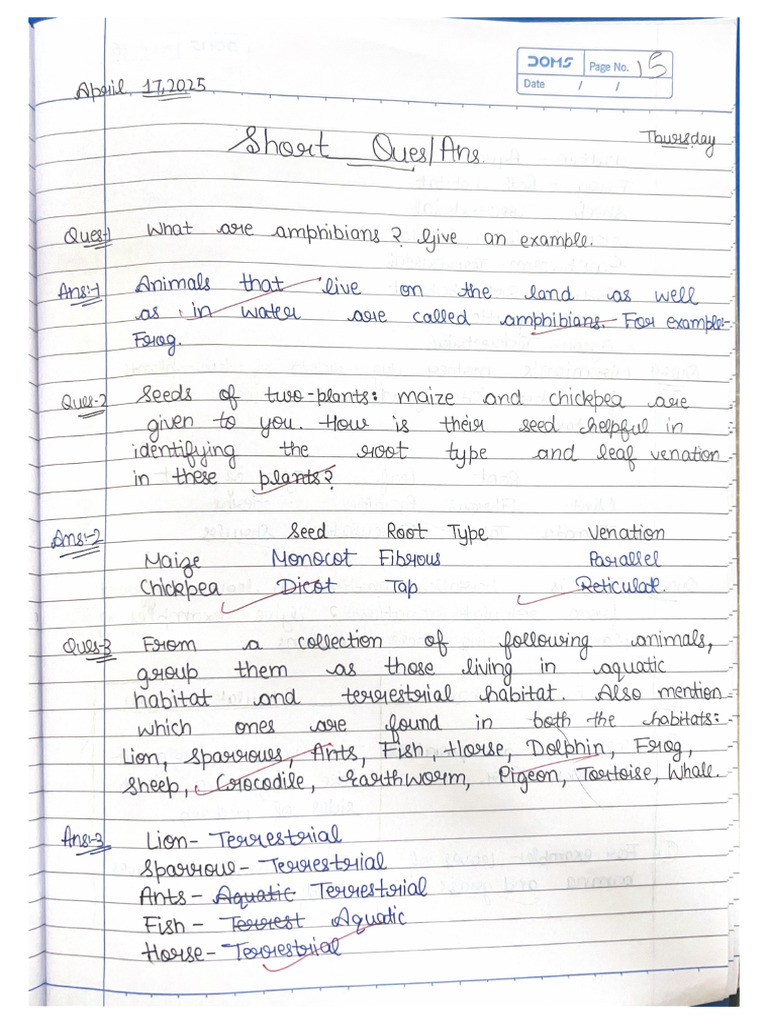 DOMS Page No. 15
Date / /
April 17,2025
Thursday
Short Ques/Ans.
Ques-1 What are amphibians? Give an example.
Ans:-1 Animals that live on the land as well
as in water are called amphibians. For example:-
Frog.
Ques-2 Seeds of two-plants: maize and chickpea are
given to you. How is their seed helpful in
identifying the root type and leaf venation
in these plants?
Ans:-2 Seed Root Type Venation
Maize Monocot Fibrous Parallel
Chickpea Dicot Tap Reticulate.
Ques-3 From a collection of following animals,
group them as those living in aquatic
habitat and terrestrial habitat. Also mention
which ones are found in both the habitats:
Lion, Sparrows, Ants, Fish, Horse, Dolphin, Frog,
Sheep, Crocodile, Earthworm, Pigeon, Tortoise, Whale.
Ans:-3 Lion- Terrestrial
Sparrow- Terrestrial
Ants- Aquatic Terrestrial
Fish - Terrest Aquatic
Horse- Terrestrial